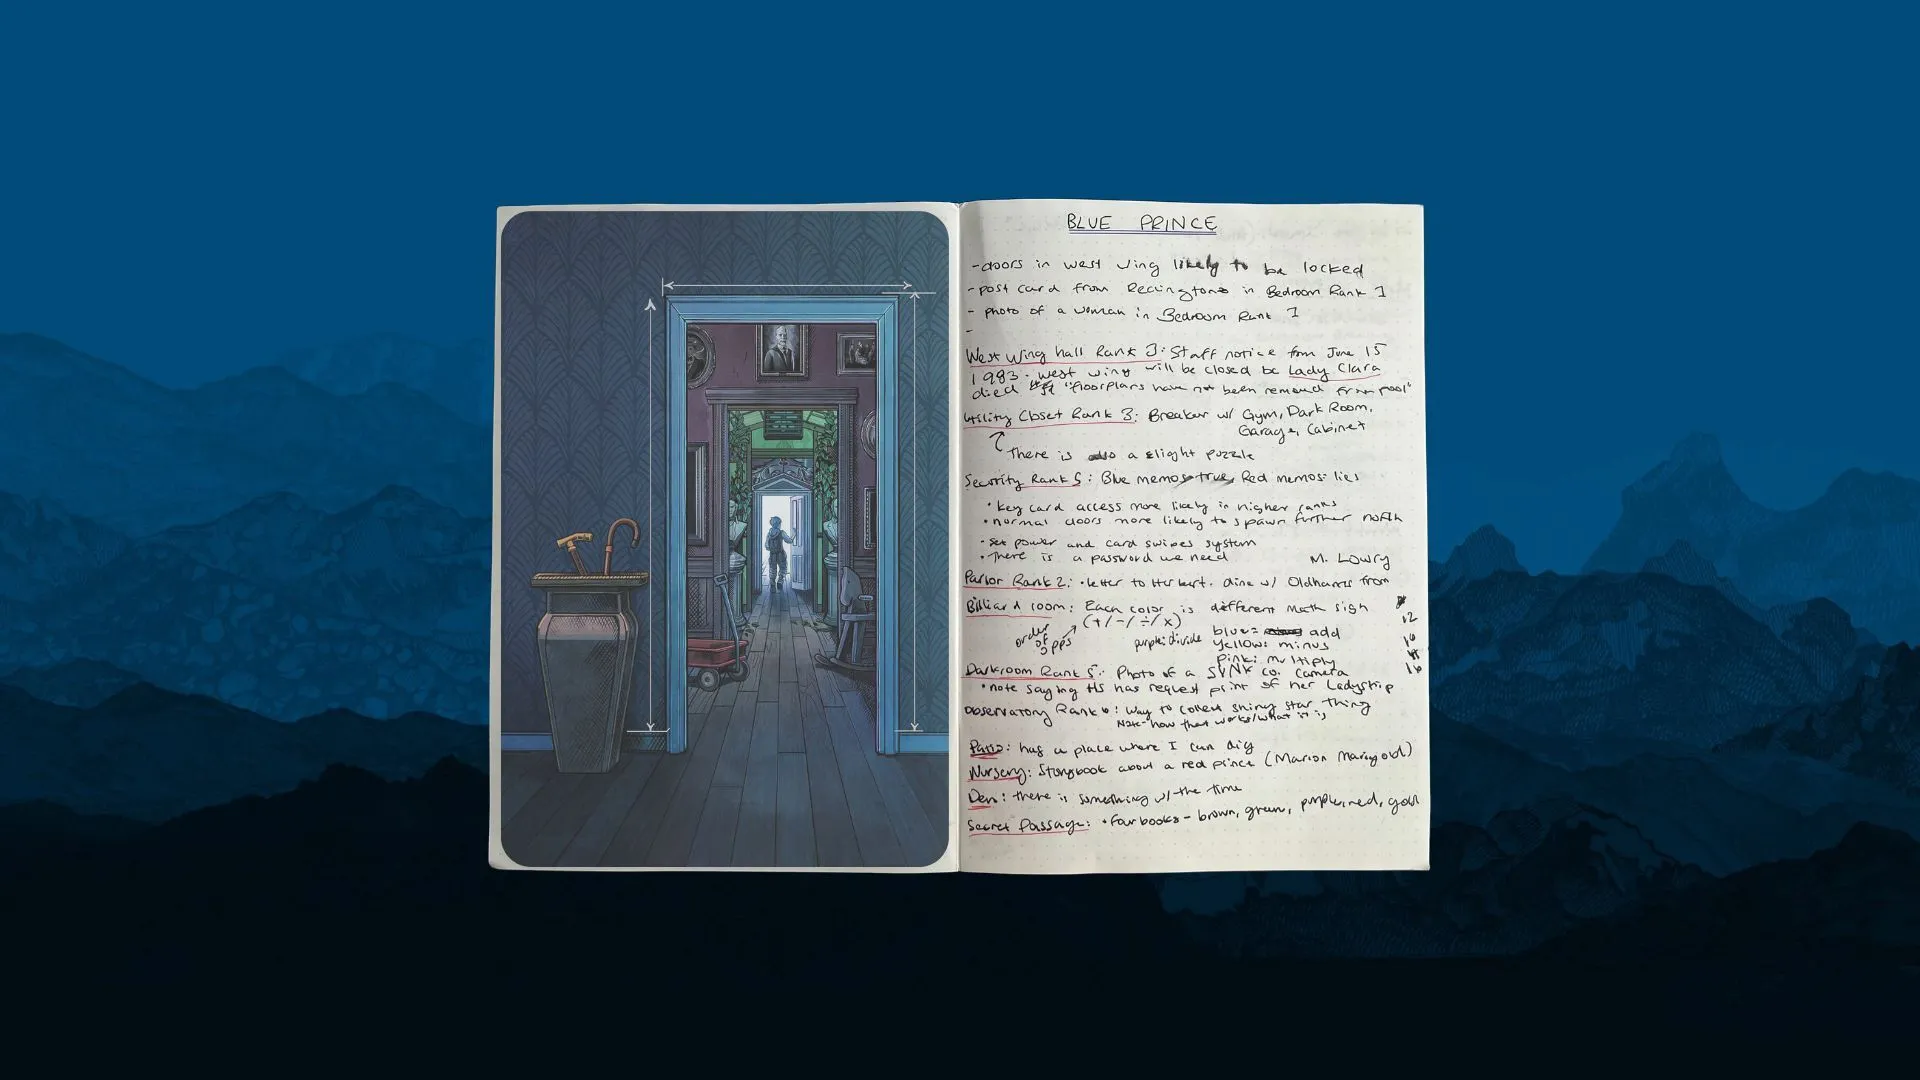 BLUE PRINCE
- doors in west wing likely to be locked
- post card from Reddington in Bedroom Rank 1
- photo of a woman in Bedroom Rank 1
-
West Wing hall Rank 3: Staff notice from June 15
1983 - west wing will be closed bc Lady Clara
died "floorplans have not been removed from pool"
Utility Closet Rank 3: Breaker w/ Gym, Dark Room,
Garage, Cabinet
There is also a slight puzzle
Security Rank 5: Blue memos true, Red memos: lies
• key card access more likely in higher ranks
• normal doors more likely to spawn further north
• set power and card swipes system
• There is a password we need
M. Lowry
Parlor Rank 2: • letter to Herbert. dine w/ Oldhams from
Billiard room: Each color is different math sign
(+/-/÷/x)
order of opps
12
blue = add
purple: divide
yellow: minus
16
pink: multiply
16
Darkroom Rank 5: Photo of a SYNK co. Camera
• note saying HS has request print of her Ladyship
Observatory Rank 6: Way to collect shiny star thing
Note - how that works/what it is
Patio: has a place where I can dig
Nursery: Storybook about a red prince (Marion Marigold)
Den: there is something w/ the time
Secret Passage: • four books - brown, green, purple, red, gold